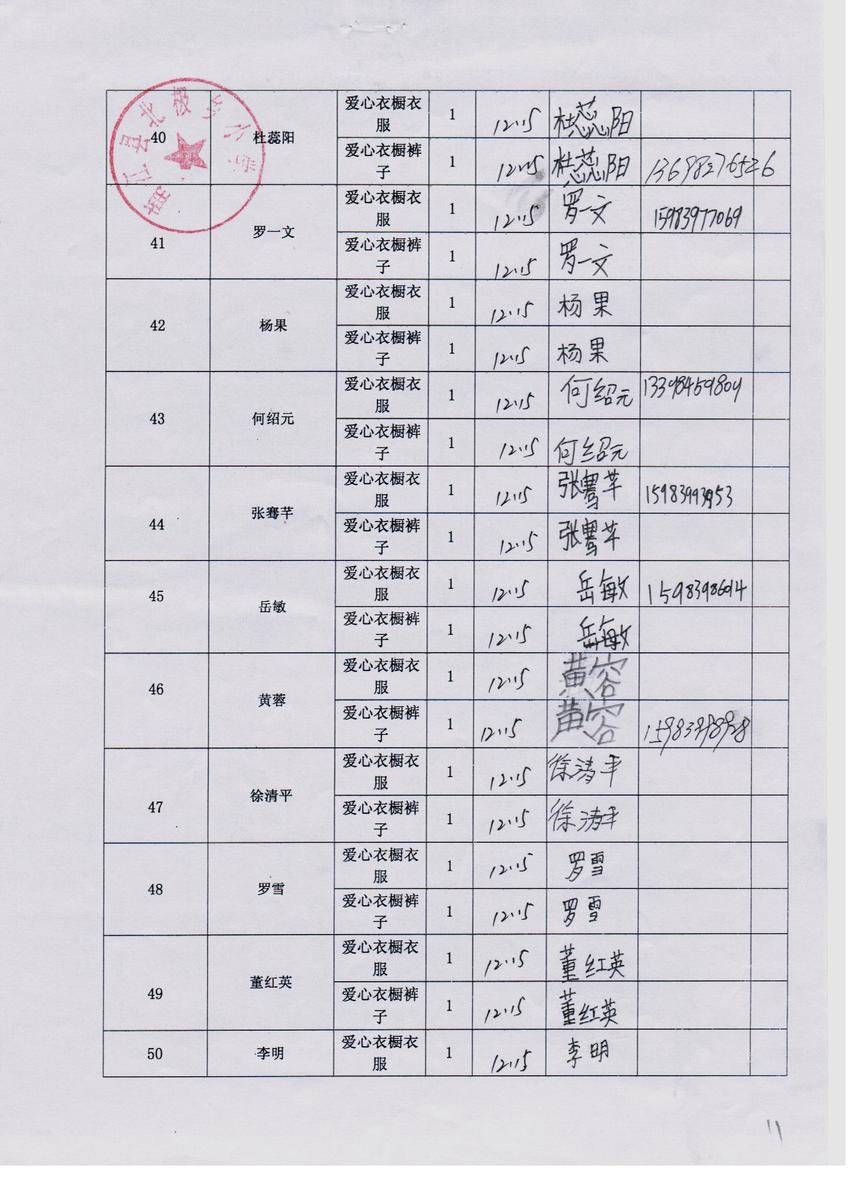 江县北极乡小学
40 杜蕊阳 爱心衣橱衣服 1 12.15 杜蕊阳
爱心衣橱裤子 1 12.15 杜蕊阳 13698276526
41 罗一文 爱心衣橱衣服 1 12.15 罗一文 15983977069
爱心衣橱裤子 1 12.15 罗一文
42 杨果 爱心衣橱衣服 1 12.15 杨果
爱心衣橱裤子 1 12.15 杨果
43 何绍元 爱心衣橱衣服 1 12.15 何绍元 13398459809
爱心衣橱裤子 1 12.15 何绍元
44 张骞芊 爱心衣橱衣服 1 12.15 张骞芊
爱心衣橱裤子 1 12.15 张骞芊
45 岳敏 爱心衣橱衣服 1 12.15 岳敏
爱心衣橱裤子 1 12.15 岳敏
46 黄蓉 爱心衣橱衣服 1 12.15 黄容
爱心衣橱裤子 1 12.15 黄容
47 徐清平 爱心衣橱衣服 1 12.15 徐清平
爱心衣橱裤子 1 12.15 徐清平
48 罗雪 爱心衣橱衣服 1 12.15 罗雪
爱心衣橱裤子 1 12.15 罗雪
49 董红英 爱心衣橱衣服 1 12.15 董红英
爱心衣橱裤子 1 12.15 董红英
50 李明 爱心衣橱衣服 1 12.15 李明
11